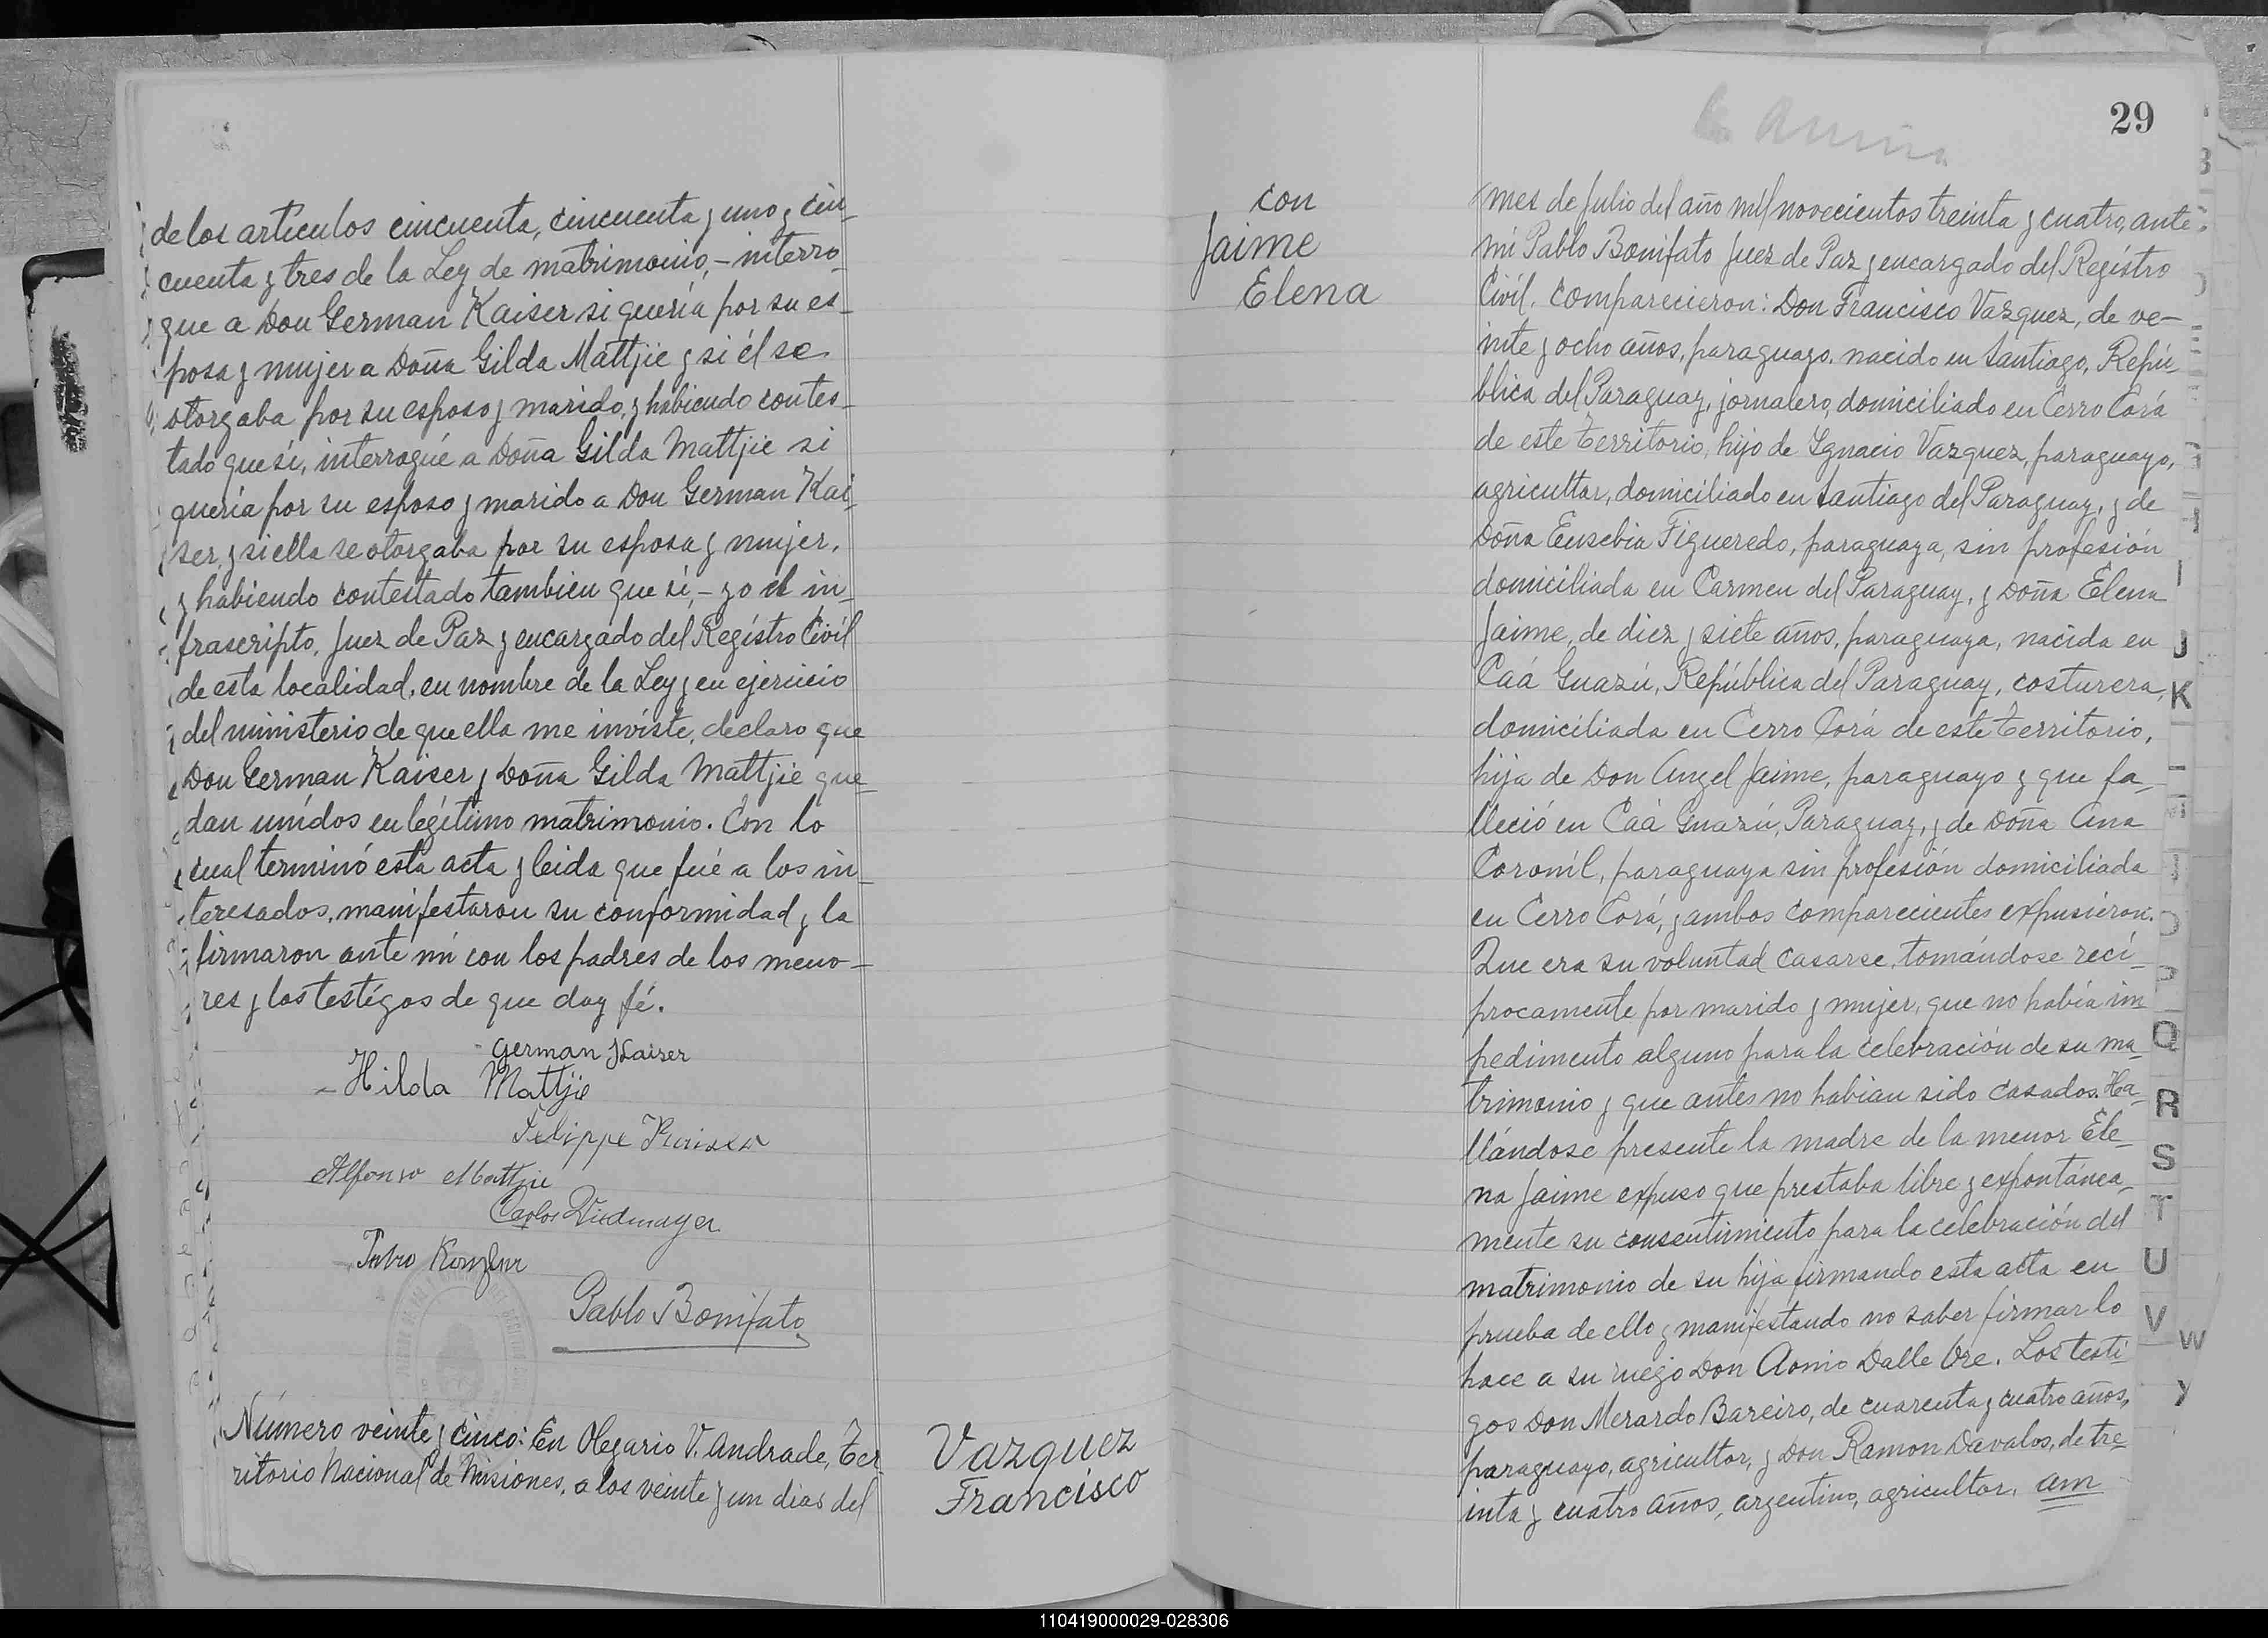 de los artículos cincuenta, cincuenta y uno y cin-
cuenta y tres de la Ley de matrimonio,- interro-
gue a Don German Kaiser si quería por su es-
posa y mujer a Doña Gilda Mattjie y si él se
otorgaba por su esposo y marido, y habiendo contes-
tado que sí, interrogué a Doña Gilda Mattjie si
quería por su esposo y marido a Don German Kai-
ser y si ella se otorgaba por su esposa y mujer,
y habiendo contestado tambien que sí,- yo el in-
frascripto, Juez de Paz y encargado del Regístro Civíl
de esta localidad, en nombre de la Ley y en ejercicio
del ministerio de que ella me inviste, declaro que
Don German Kaiser y Doña Gilda Mattjie que-
dan unídos en legítimo matrimonio. Con lo
cual terminó esta acta y leida que fué a los in-
teresados, manifestaron su conformidad y la
firmaron ante mí con los padres de los meno-
res y los testígos de que doy fé.
German Kaiser
Hilda Mattjie
Felippe
Alfonso Mattjie
Carlos
Pablo Bonifato
Número veinte y cinco: En Olegario V. Andrade, Ter-
ritorio Nacional de Misiones, a los veinte y un dias del
Vazquez
Francisco
con
Jaime
Elena
29
mes de Julio del año mil novecientos treinta y cuatro, ante
mí Pablo Bonifato Juez de Paz y encargado del Regístro
Civíl. Comparecieron: Don Francisco Vazquez, de ve-
inte y ocho años, paraguayo, nacido en Santiago, Repú-
blica del Paraguay, jornalero, domiciliado en Cerro Corá
de este territorio, hijo de Ygnacio Vazquez, paraguayo,
agricultor, domiciliado en Santiago del Paraguay, y de
Doña Eusebia Figueredo, paraguaya, sin profesión
domiciliada en Carmen del Paraguay, y Doña Elena
Jaime, de diez y siete años, paraguaya, nacida en
Caá Guazú, República del Paraguay, costurera,
domiciliada en Cerro Corá de este territorio,
hija de Don Angel Jaime, paraguayo y que fa-
lleció en Caá Guazú, Paraguay, y de Doña Ana
Coroníl, paraguaya sin profesión domiciliada
en Cerro Corá, y ambos comparecientes expusieron.
Que era su voluntad casarse, tomándose recí-
procamente por marido y mujer, que no había im
pedimento alguno para la celebración de su ma-
trimonio y que antes no habian sido casados. Ha-
llándose presente la madre de la menor Ele-
na Jaime expuso que prestaba libre y expontánea-
mente su consentimiento para la celebración del
matrimonio de su hija firmando esta acta en
prueba de ello y manifestando no saber firmar lo
hace a su ruego Don Aonio Dalle Ore. Los testi
gos Don Merardo Bareiro, de cuarenta y cuatro años,
paraguayo, agricultor, y Don Ramon Davalos, de tre-
inta y cuatro años, argentino, agricultor, am
J
K
Q
R
S
T
U
V
W
Y
110419000029-028306